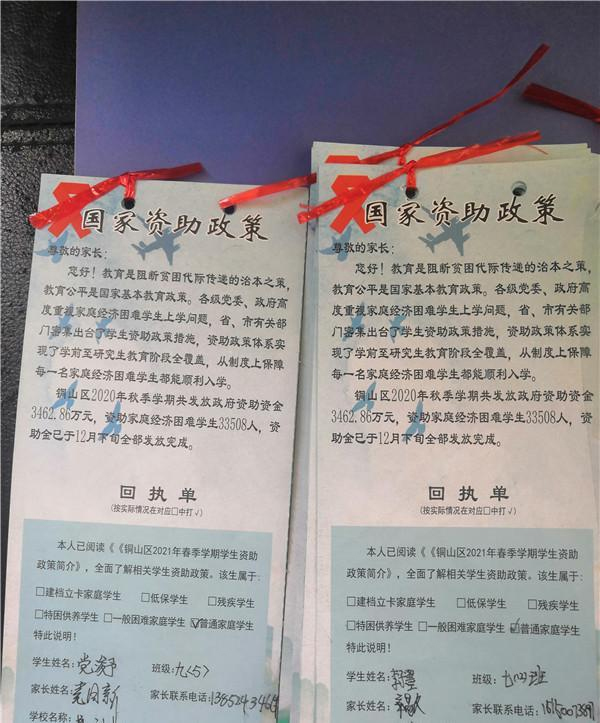 国家资助政策
尊敬的家长：
您好！教育是阻断贫困代际传递的治本之策，
教育公平是国家基本教育政策。各级党委、政府高
度重视家庭经济困难学生上学问题，省、市有关部
门密集出台了学生资助政策措施，资助政策体系实
现了学前至研究生教育阶段全覆盖，从制度上保障
每一名家庭经济困难学生都能顺利入学。
铜山区2020年秋季学期共发放政府资助资金
3462.86万元，资助家庭经济困难学生33508人，资
助金已于12月下旬全部发放完成。
回执单
（按实际情况在对应□中打√）
本人已阅读《《铜山区2021年春季学期学生资助
政策简介》，全面了解相关学生资助政策。该生属于：
□建档立卡家庭学生 □低保学生 □残疾学生
□特困供养学生 □一般困难家庭学生 ☑普通家庭学生
特此说明！
学生姓名： 班级：九(5)
家长姓名： 家长联系电话：
学校名称：
国家资助政策
尊敬的家长：
您好！教育是阻断贫困代际传递的治本之策，
教育公平是国家基本教育政策。各级党委、政府高
度重视家庭经济困难学生上学问题，省、市有关部
门密集出台了学生资助政策措施，资助政策体系实
现了学前至研究生教育阶段全覆盖，从制度上保障
每一名家庭经济困难学生都能顺利入学。
铜山区2020年秋季学期共发放政府资助资金
3462.86万元，资助家庭经济困难学生33508人，资
助金已于12月下旬全部发放完成。
回执单
（按实际情况在对应□中打√）
本人已阅读《《铜山区2021年春季学期学生资助
政策简介》，全面了解相关学生资助政策。该生属于：
□建档立卡家庭学生 □低保学生 □残疾学生
□特困供养学生 □一般困难家庭学生 ☑普通家庭学生
特此说明！
学生姓名： 班级：
家长姓名： 家长联系电话：